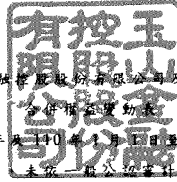 玉山金融
控股股份
有限公司
控股股份有限公司及
合併權益變動表
年及 110 年 1 月 1 日至